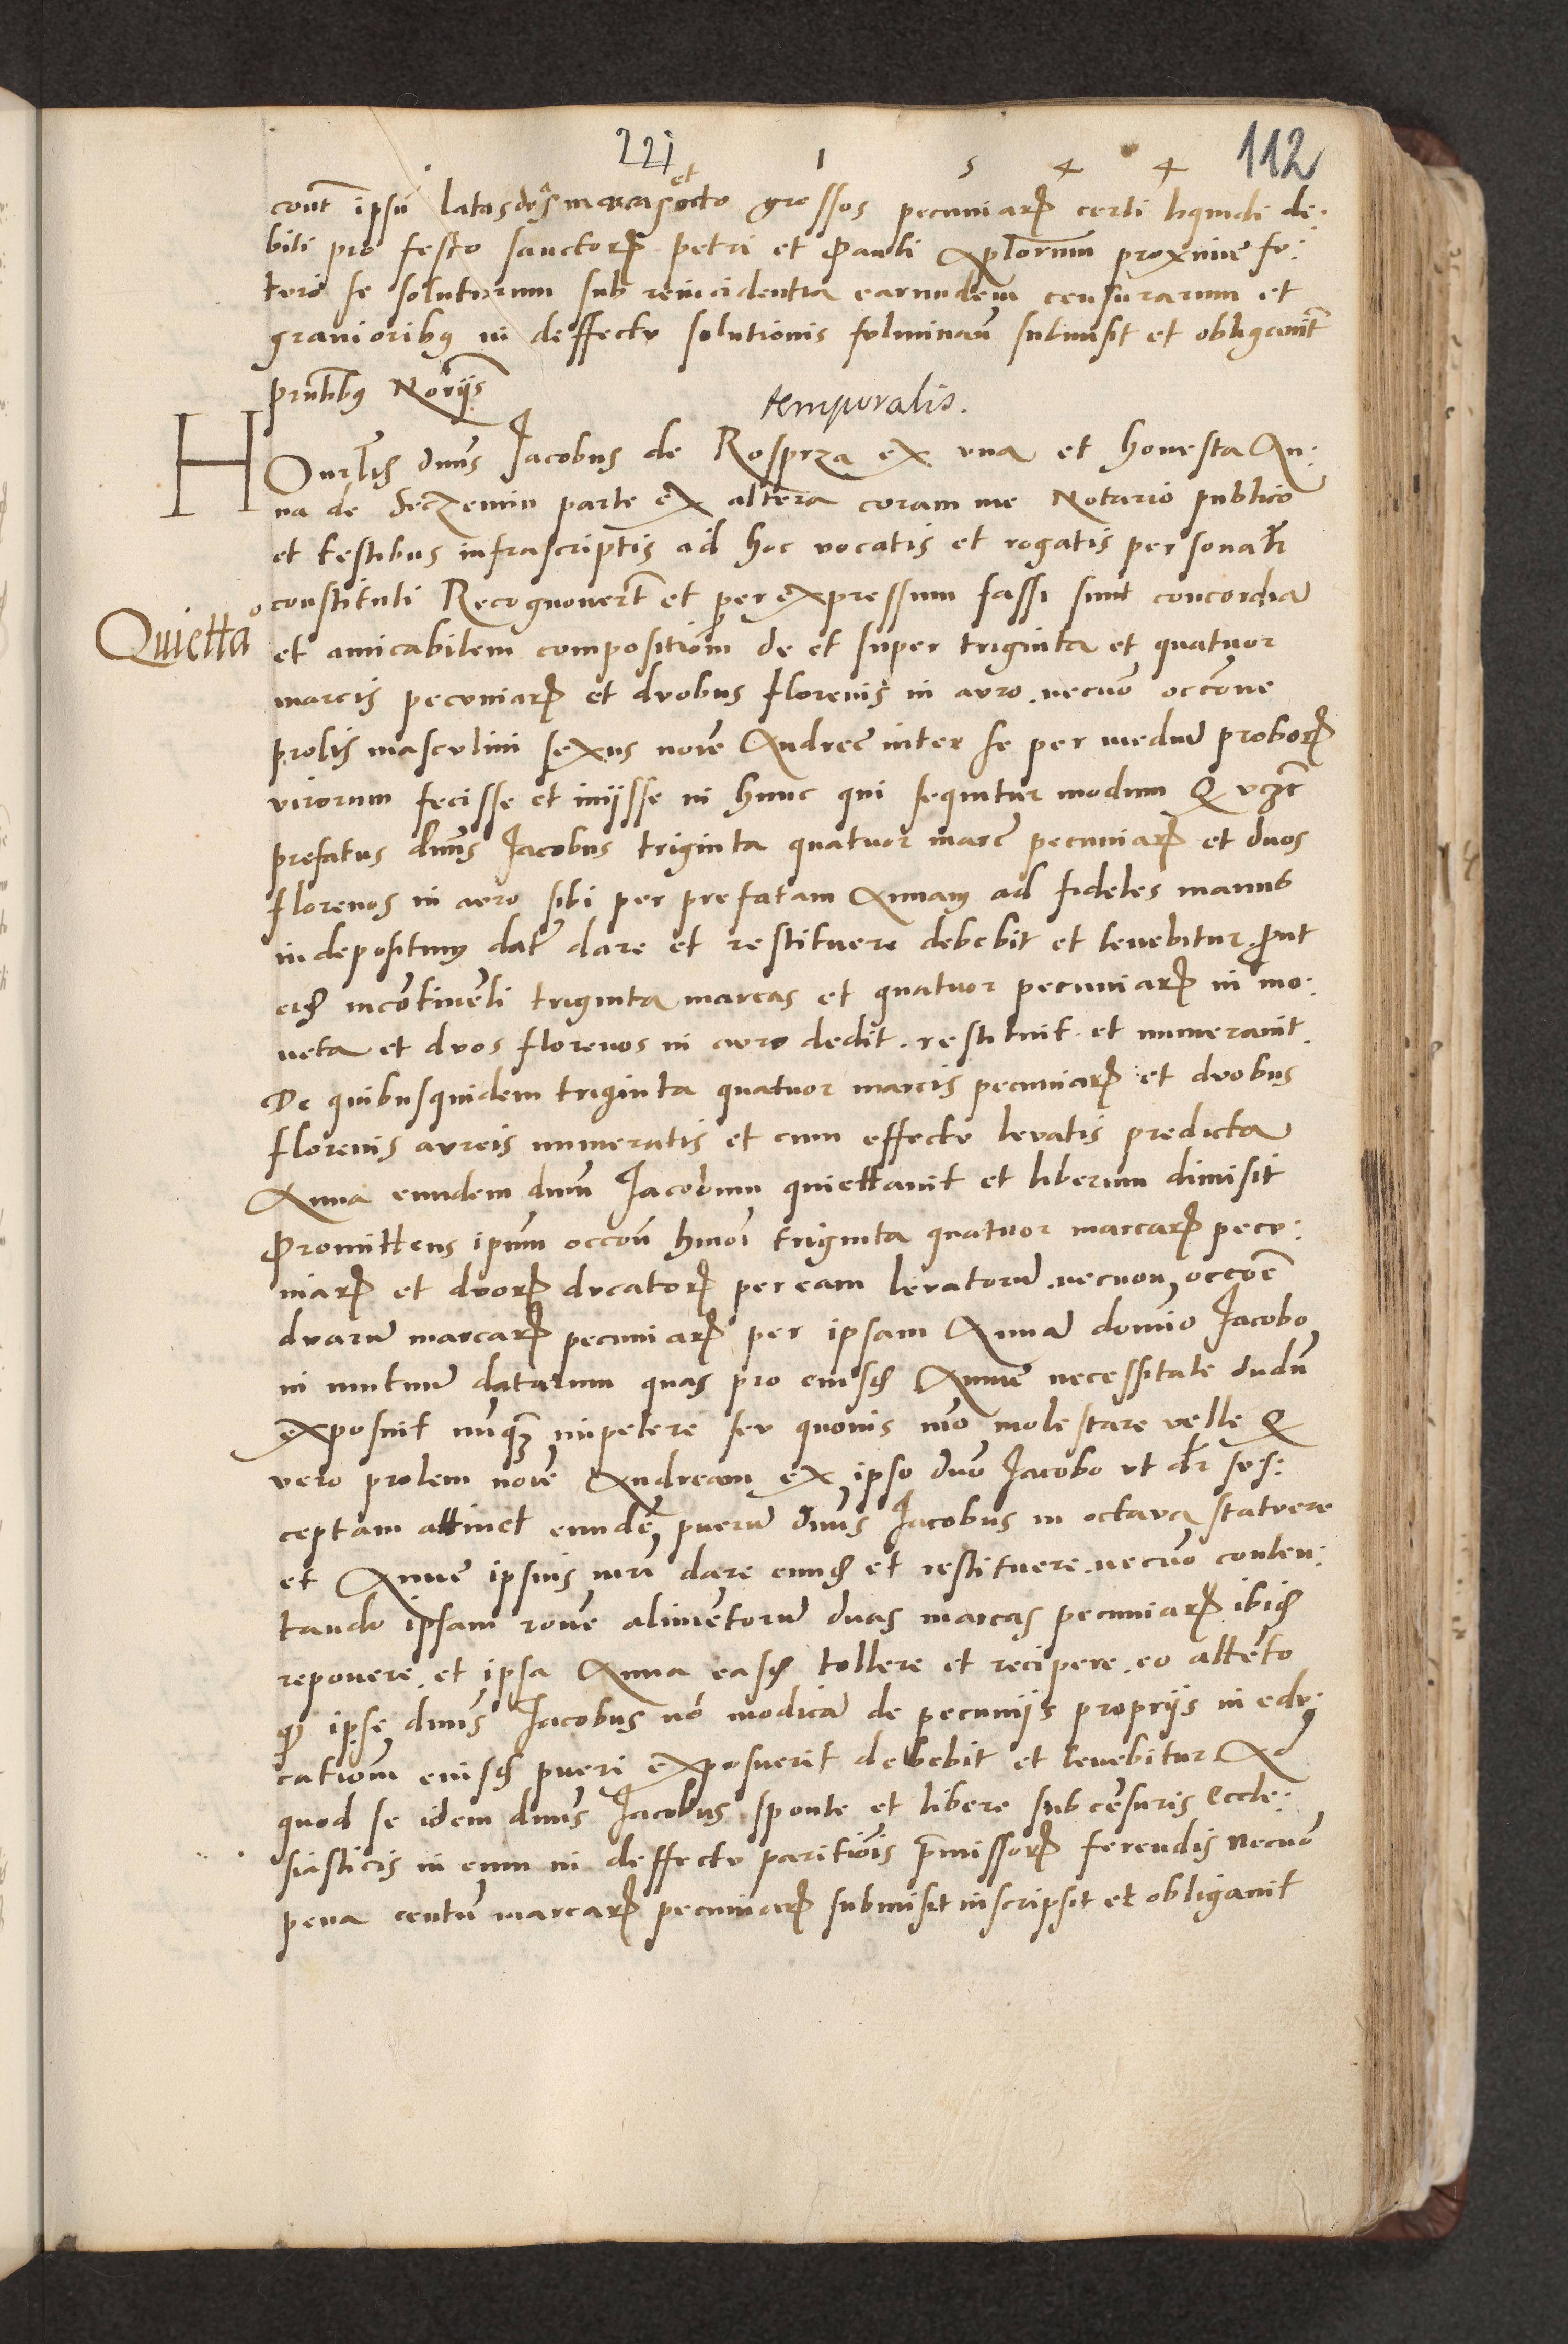 221 1 5 4 4 112
et
cont͠ ipsū latas dn̄s marcas octo grossos pecuniarꝝ certi liquidi de:
biti pro festo sanctorꝝ petri et Pauli Ap̄lorum proxime fu:
turo se soluturum sub reincidentia earundem censurarum et
gravioribꝰ in deffectu solutionis fulminan̄ submisit et obligavit
pn̄tibꝰ Nor̄ijs
temporalis.
HOnr̄lis dnu̅s Jacobus de Rosprza ex una et honesta An:
na de Seczemin parte ex altera coram me Notario publico
et testibus infrascriptis ad hoc vocatis et rogatis personalr̄
Quietta°
constituti Recognovert̄ et per expressum fassi sunt concordiā
et amicabilem compositiōm de et super triginta et quatuor
marcis pecuniarꝝ et duobus florenis in auro. necnō occōne
prolis masculini sexus noīe Andreē inter se per mediū proborꝝ
virorum fecisse et inijsse in hunc qui sequitur modum Q vcꝫt
prefatus dnu̅s Jacobus triginta quatuor marc̄ pecuniarꝝ et duos
florenos in auro sibi per prefatam Annam ad fideles manus
in depositum dat̄ dare et restituere debebit et tenebitur. ꝓut
eiꝫ incōtinēti triginta marcas et quatuor pecuniarꝝ in mo:
neta et duos florenos in auro dedit. restituit. et numeravit.
De quibusquidem triginta quatuor marcis pecuniarꝝ et duobus
florenis aureis numeratis et cum effectu levatis predicta
Anna eundem dnū Jacobum quiettavit et liberum dimisit
Promittens ip̄um occōn hmōi triginta quatuor marcarꝝ pecu:
niarꝝ et duorꝝ ducatorꝝ per eam levatorū. necnon occōē
duarū marcarꝝ pecuniarꝝ per ipsam Annā domīo Jacobo
in mutuū datarum quas pro eiusꝫ Anne necessitate dudū
exposuit nūqꝫ impetere seu quovis mō molestare velle Q
vero prolem noīe Andream ex ipso dnō Jacobo ut dr̄ sus:
ceptam attinet eundē puerū dnu̅s Jacobus in octava statuere
et Anne ipsius mr̄i dare eunꝫ et restituere. necnō conten:
tando ipsam rōne alimētorū duas marcas pecuniarꝝ ibiꝫ
reponere. et ipsa Anna easꝫ tollere et recipere. eo attēto
ꝙ ipse dnu̅s Jacobus nō modicā de pecunijs proprijs in edu:
cationem eiusꝫ pueri exposuerit debebit et tenebitur Ad
quod se idem dnu̅s Jacobus sponte et libere sub cēsuris eccle:
siasticis in eum in deffectu paritiōis p̄missorꝝ ferendis Necnō
pena centū marcarꝝ pecuniarꝝ submisit inscripsit et obligavit